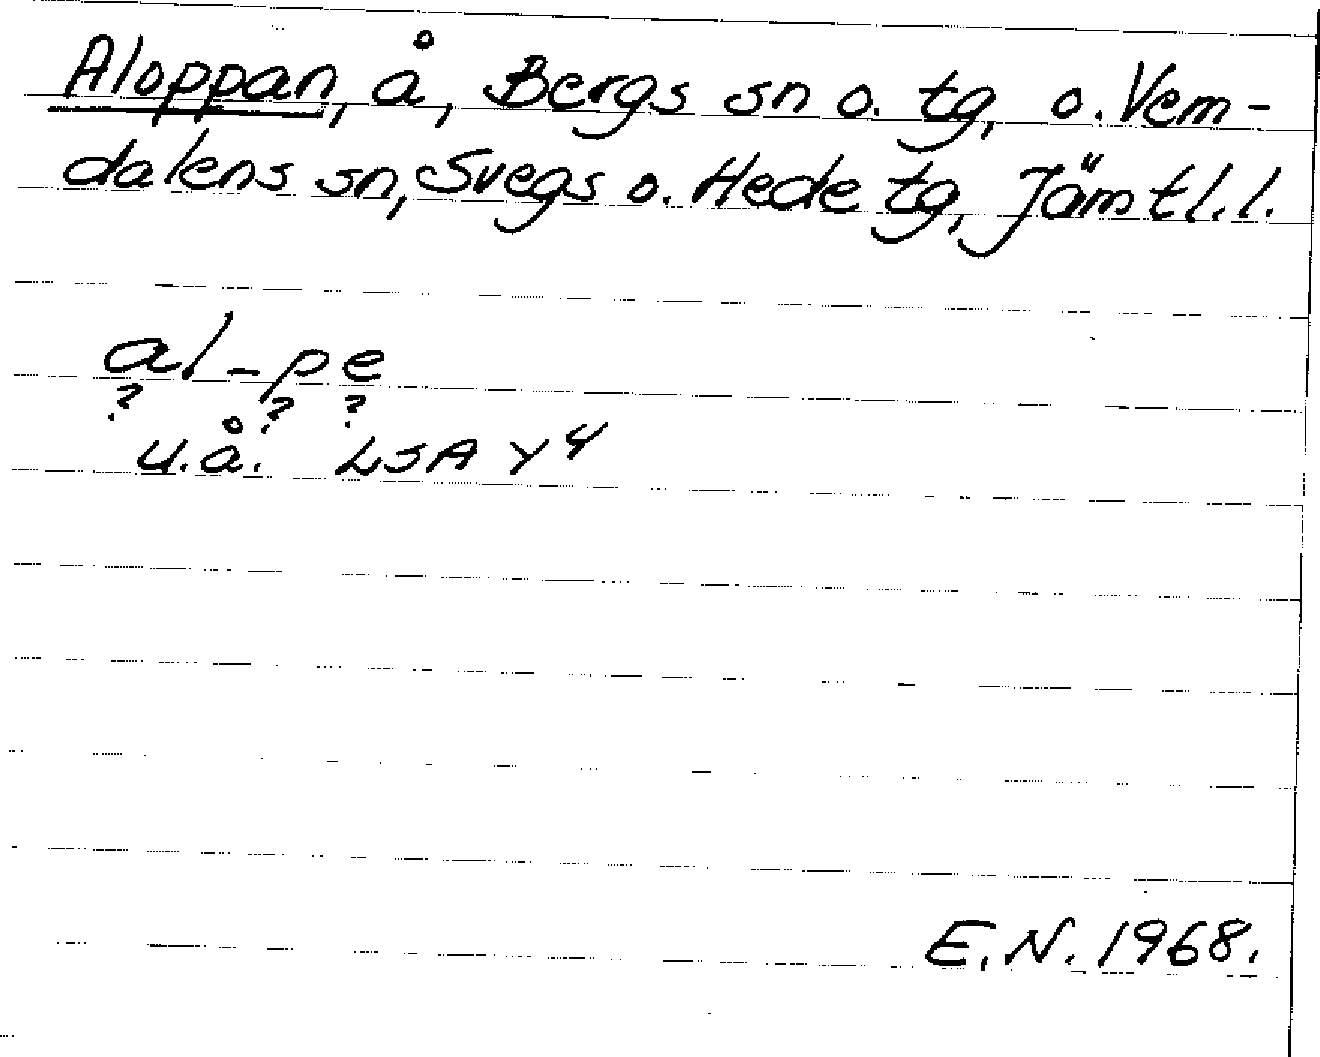 Aloppan, å, Bergs sn o. tg, o. Vem-
dalens sn, Svegs o. Hede tg, Jämtl. l.
al-pe
? ? ?
u.å. LSA Y 4
E.N. 1968.